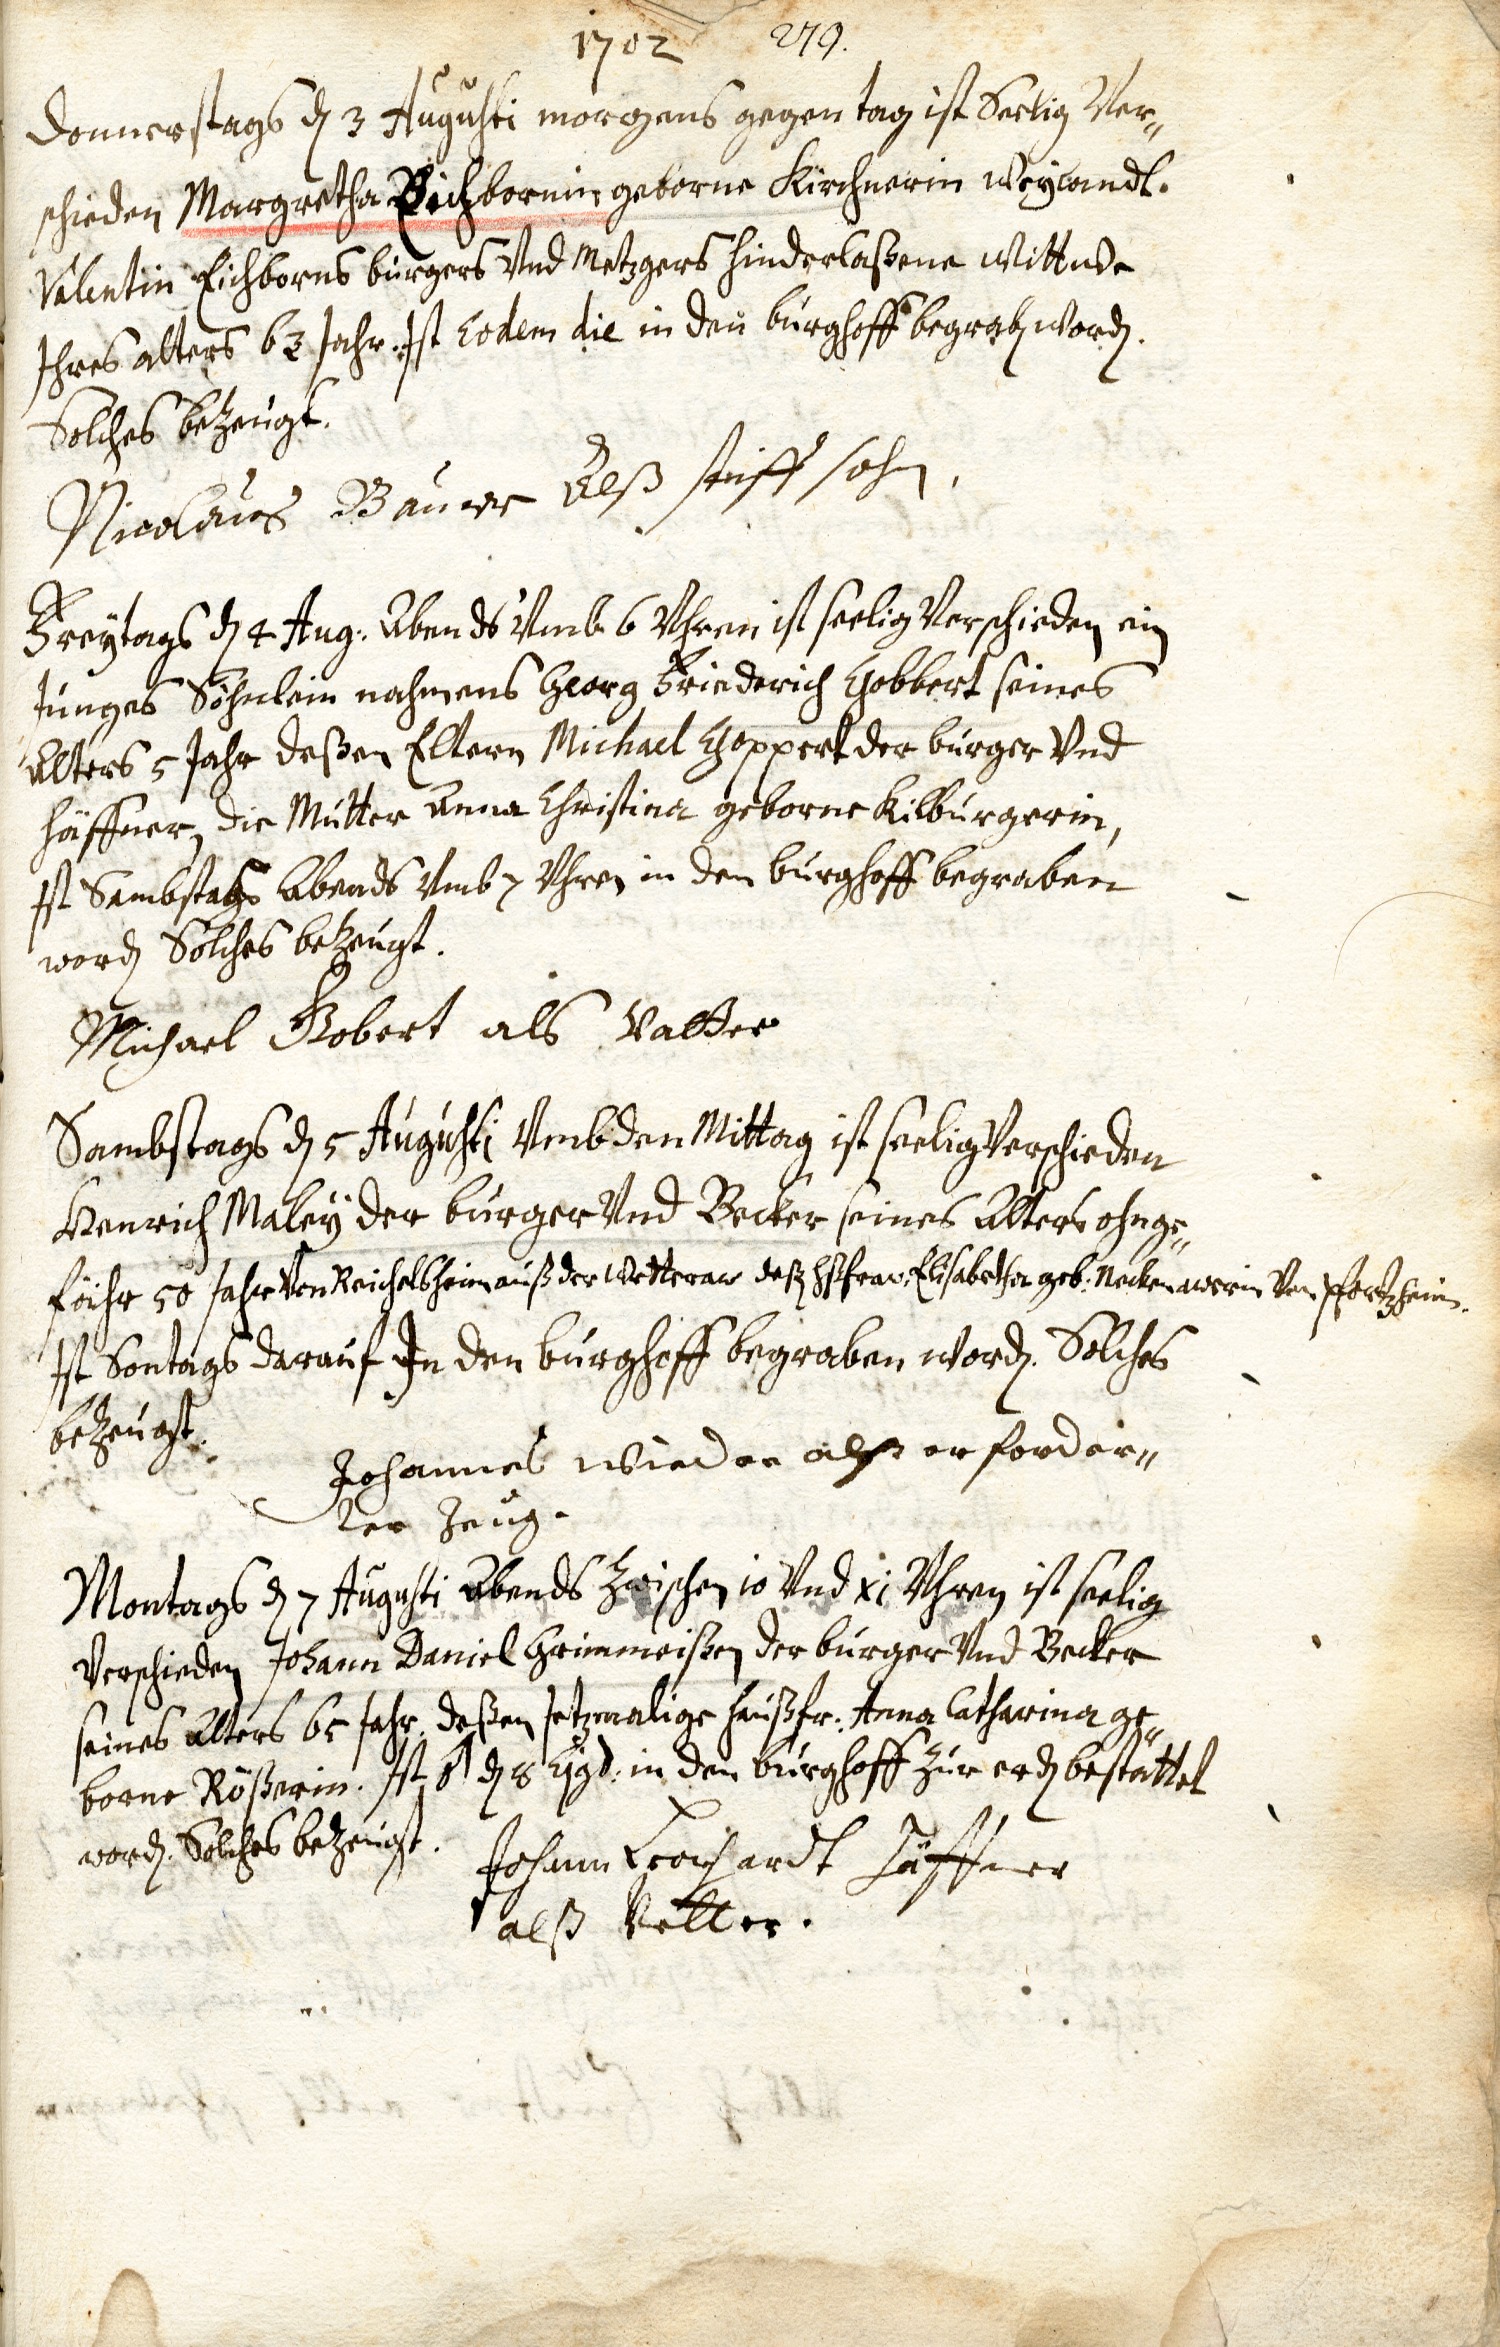 1702 279.
Donnerstags dn 3 Augusti morgens gegen tag ist Seelig Ver„
schieden Margretha Eichbornin geborne Kirchnerin Weylandt.
Valentin Eichborns burgers Vnd Metzgers hinderlaßene Wittwe
Ihres alters 63 Jahr. Ist Eodem die in den burghoff begrabn wordn.
Solches bezeugt.
Nicolaus Bauer Alß stiff sohn.
Freytags dn 4 Aug: Abends Vmb 6 Vhren ist seelig Verschieden ein
Junges Söhnlein nahmens Georg Friederich Gobbert seines
Alters 5 Jahr deßen Eltern Michael Goppert der burger Vnd
häffner, die Mutter Anna Christina geborne Kilburgerin,
Ist Sambstags Abends Vmb 7 Vhren in den burghoff begraben
wordn Solches bezeugt.
Michael Gobert als Vatter
Sambstags dn 5 Augusti Vmb den Mittag ist seelig Verschieden
Henrich Maley der burger Vnd Becker seines Alters ohnge„
fähr 50 Jahr Von Reichelsheim auß der Wetteraw deßn hßfraw Elisabetha geb: Neckenawerin Von Pfortzheim.
Ist Sontags darauf In den burghoff begraben wordn. Solches
bezeugt.
Johannes Wieder alß erforder„
ter Zeug.
Montags dn 7 Augusti Abends Zwischen 10 Vnd XI Vhren ist seelig
Verschieden Johann Daniel Grimmeißen der burger Vnd Becker
seines Alters 65 Jahr. deßen Jetzmalige haußfr: Anna Catharina ge„
borne Rößerin. Ist dn 8 in den burghoff zur erdn bestättet
wordn. Solches bezeugt.
Johann Leonhardt Häffner
alß Vetter.